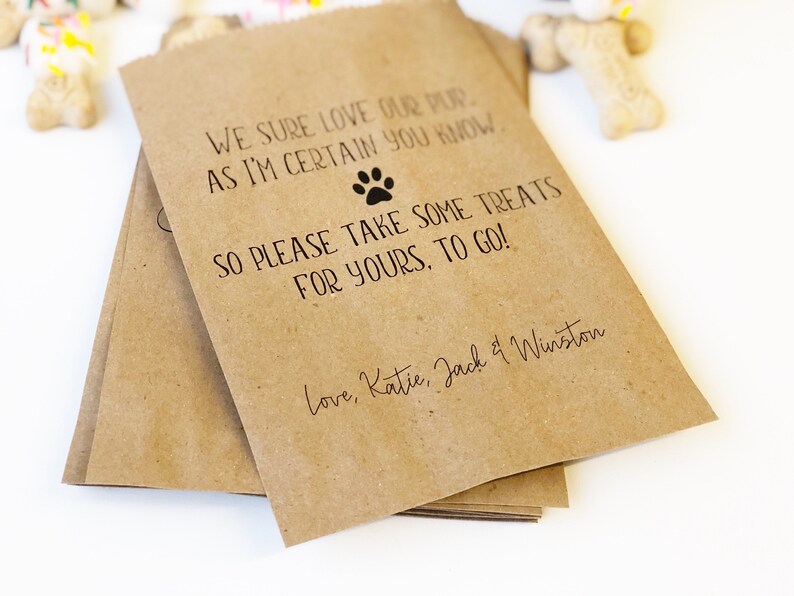 WE SURE LOVE OUR PUP,
AS I'M CERTAIN YOU KNOW.
SO PLEASE TAKE SOME TREATS
FOR YOURS, TO GO!
Love, Katie, Jack & Winston